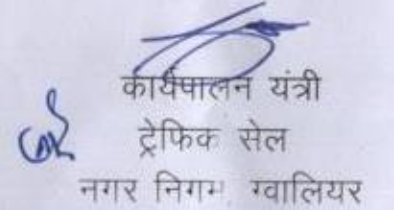 कार्यपालन यंत्री
ट्रेफिक सेल
नगर निगम ग्वालियर